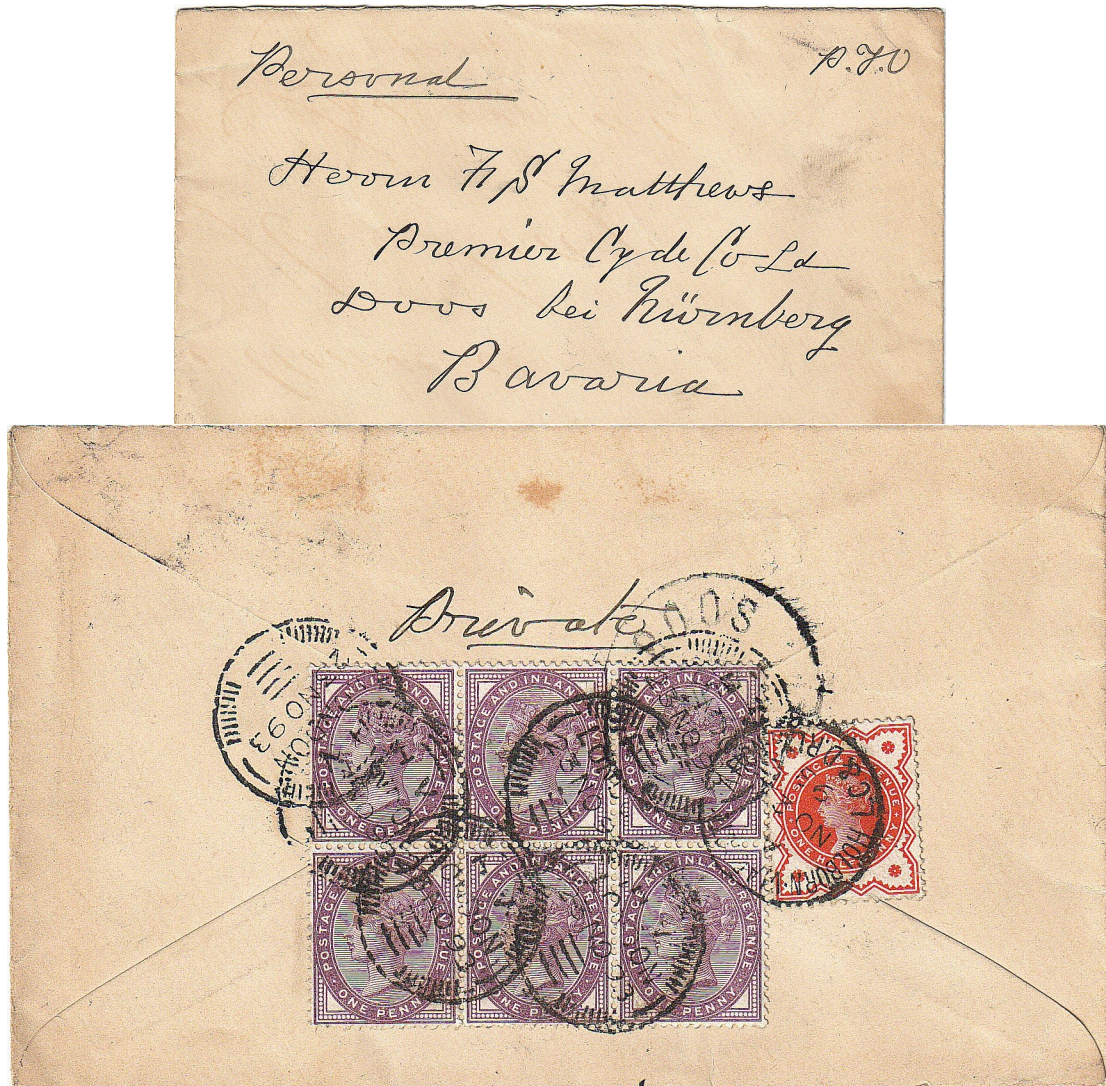 Personal
P.T.O
Herrn F S Matthews
Premier Cycle Co Ld
Doos bei Nürnberg
Bavaria
Private
DOOS
POSTAGE AND INLAND REVENUE
ONE PENNY
POSTAGE AND INLAND REVENUE
ONE PENNY
POSTAGE AND INLAND REVENUE
ONE PENNY
POSTAGE REVENUE
ONE HALF PENNY
HOLBORN
NO
POSTAGE AND INLAND REVENUE
ONE PENNY
POSTAGE AND INLAND REVENUE
ONE PENNY
POSTAGE AND INLAND REVENUE
ONE PENNY
NO 93